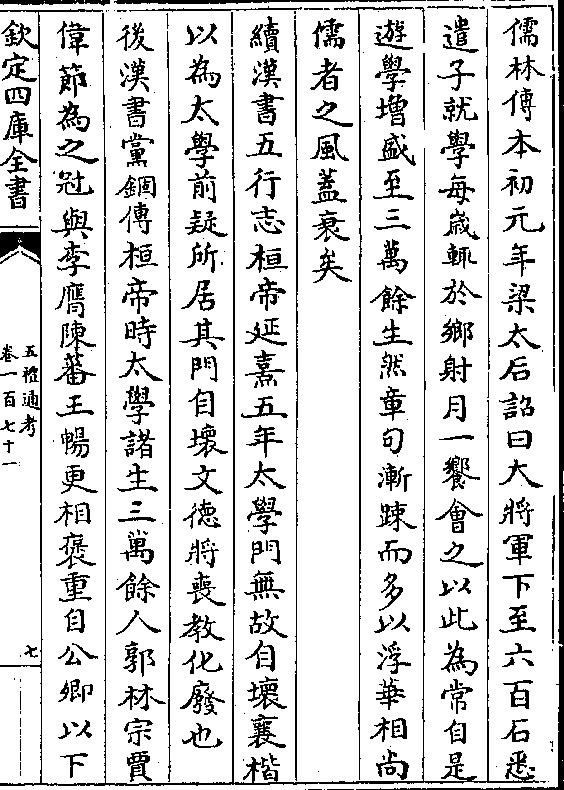 儒林傳本初元年梁太后詔曰大將軍下至六百石悉
遣子就學每歲輒於鄉射月一饗會之以此為常自是
遊學增盛至三萬餘生然章句漸踈而多以浮華相尚
儒者之風蓋衰矣
續漢書五行志桓帝延熹五年太學門無故自壞襄楷
以為太學前疑所居其門自壞文德將喪教化廢也
後漢書黨錮傳桓帝時太學諸生三萬餘人郭林宗賈
偉節為之冠與李膺陳蕃王暢更相褒重自公卿以下
欽定四庫全書
五禮通考
卷一百七十一
七